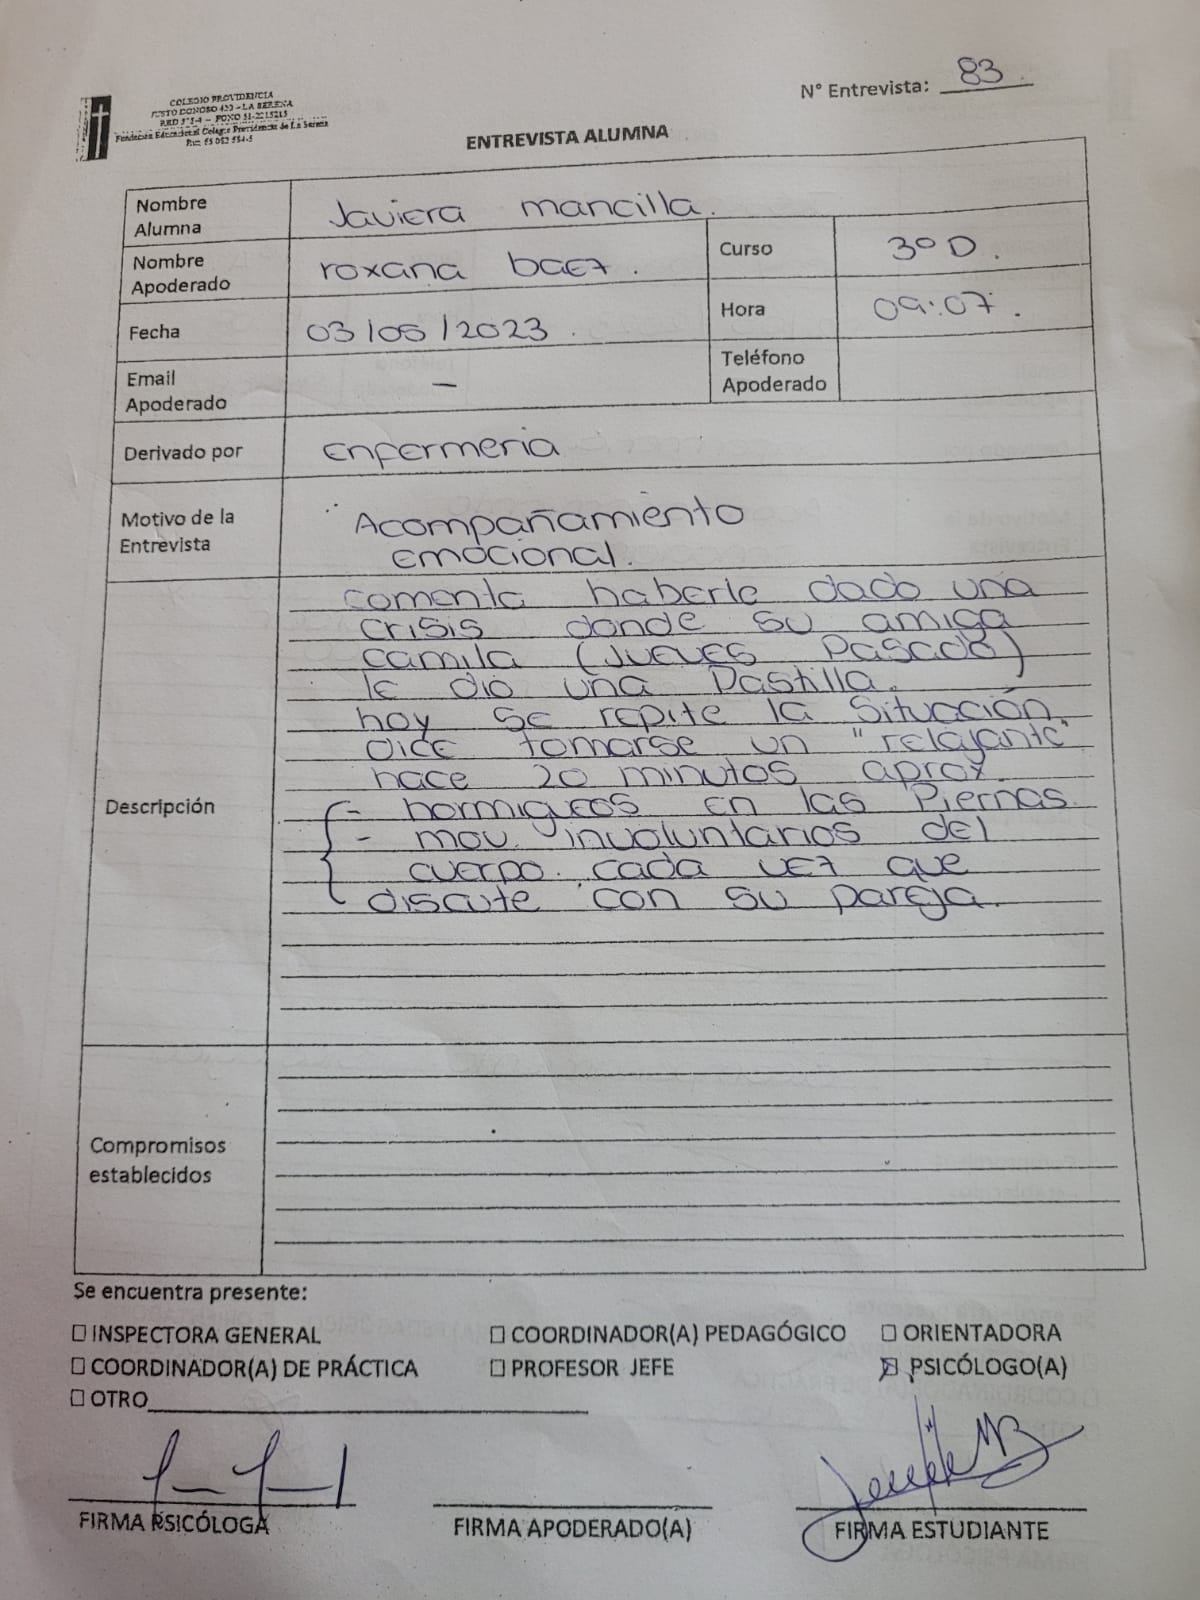 COLEGIO PROVIDENCIA
JUSTO DONOSO 420 - LA SERENA
FONO 51-2215215
Fundación Educacional Colegio Providencia de La Serena
N° Entrevista: 83.
ENTREVISTA ALUMNA
Nombre Alumna
Javiera mancilla.
Nombre Apoderado
roxana baez.
Curso
3º D.
Fecha
03/05/2023.
Hora
09:07.
Email Apoderado
—
Teléfono Apoderado
Derivado por
Enfermeria
Motivo de la Entrevista
Acompañamiento
emocional.
Descripción
comenta haberle dado una
crisis donde su amiga
camila (Jueves Pasado)
le dio una Pastilla.
hoy se repite la situación,
dice tomarse un "relajante"
hace 20 minutos aprox.
- hormigueos en las Piernas
- mov. involuntarios del
cuerpo. cada vez que
discute con su pareja.
Compromisos establecidos
Se encuentra presente:
☐ INSPECTORA GENERAL ☐ COORDINADOR(A) PEDAGÓGICO ☐ ORIENTADORA
☐ COORDINADOR(A) DE PRÁCTICA ☐ PROFESOR JEFE ☒ PSICÓLOGO(A)
☐ OTRO
FIRMA PSICÓLOGA FIRMA APODERADO(A) FIRMA ESTUDIANTE